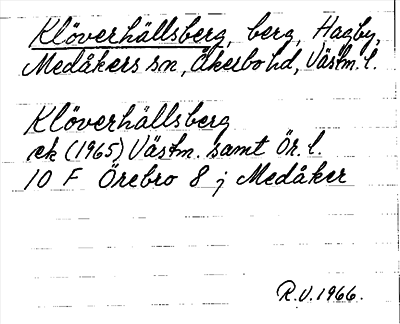 Klöverhällsberg, berg, Hagby,
Medåkers sn, Åkerbo hd, Västm. l.
Klöverhällsberg
ek (1965) Västm. samt Ör. l.
10 F Örebro 8 j Medåker
R.V. 1966.